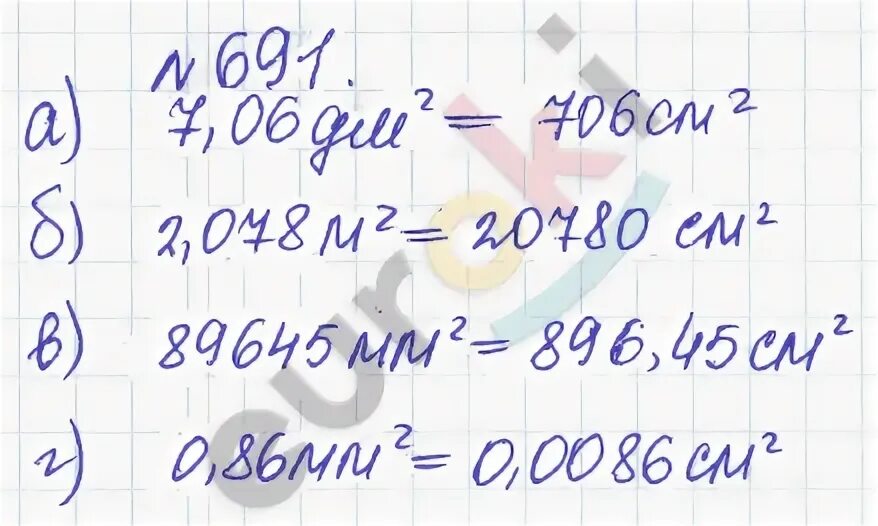 № 691.
а) 7,06 дм² = 706 см²
б) 2,078 м² = 20780 см²
в) 89645 мм² = 896,45 см²
г) 0,86 мм² = 0,0086 см²
euroki